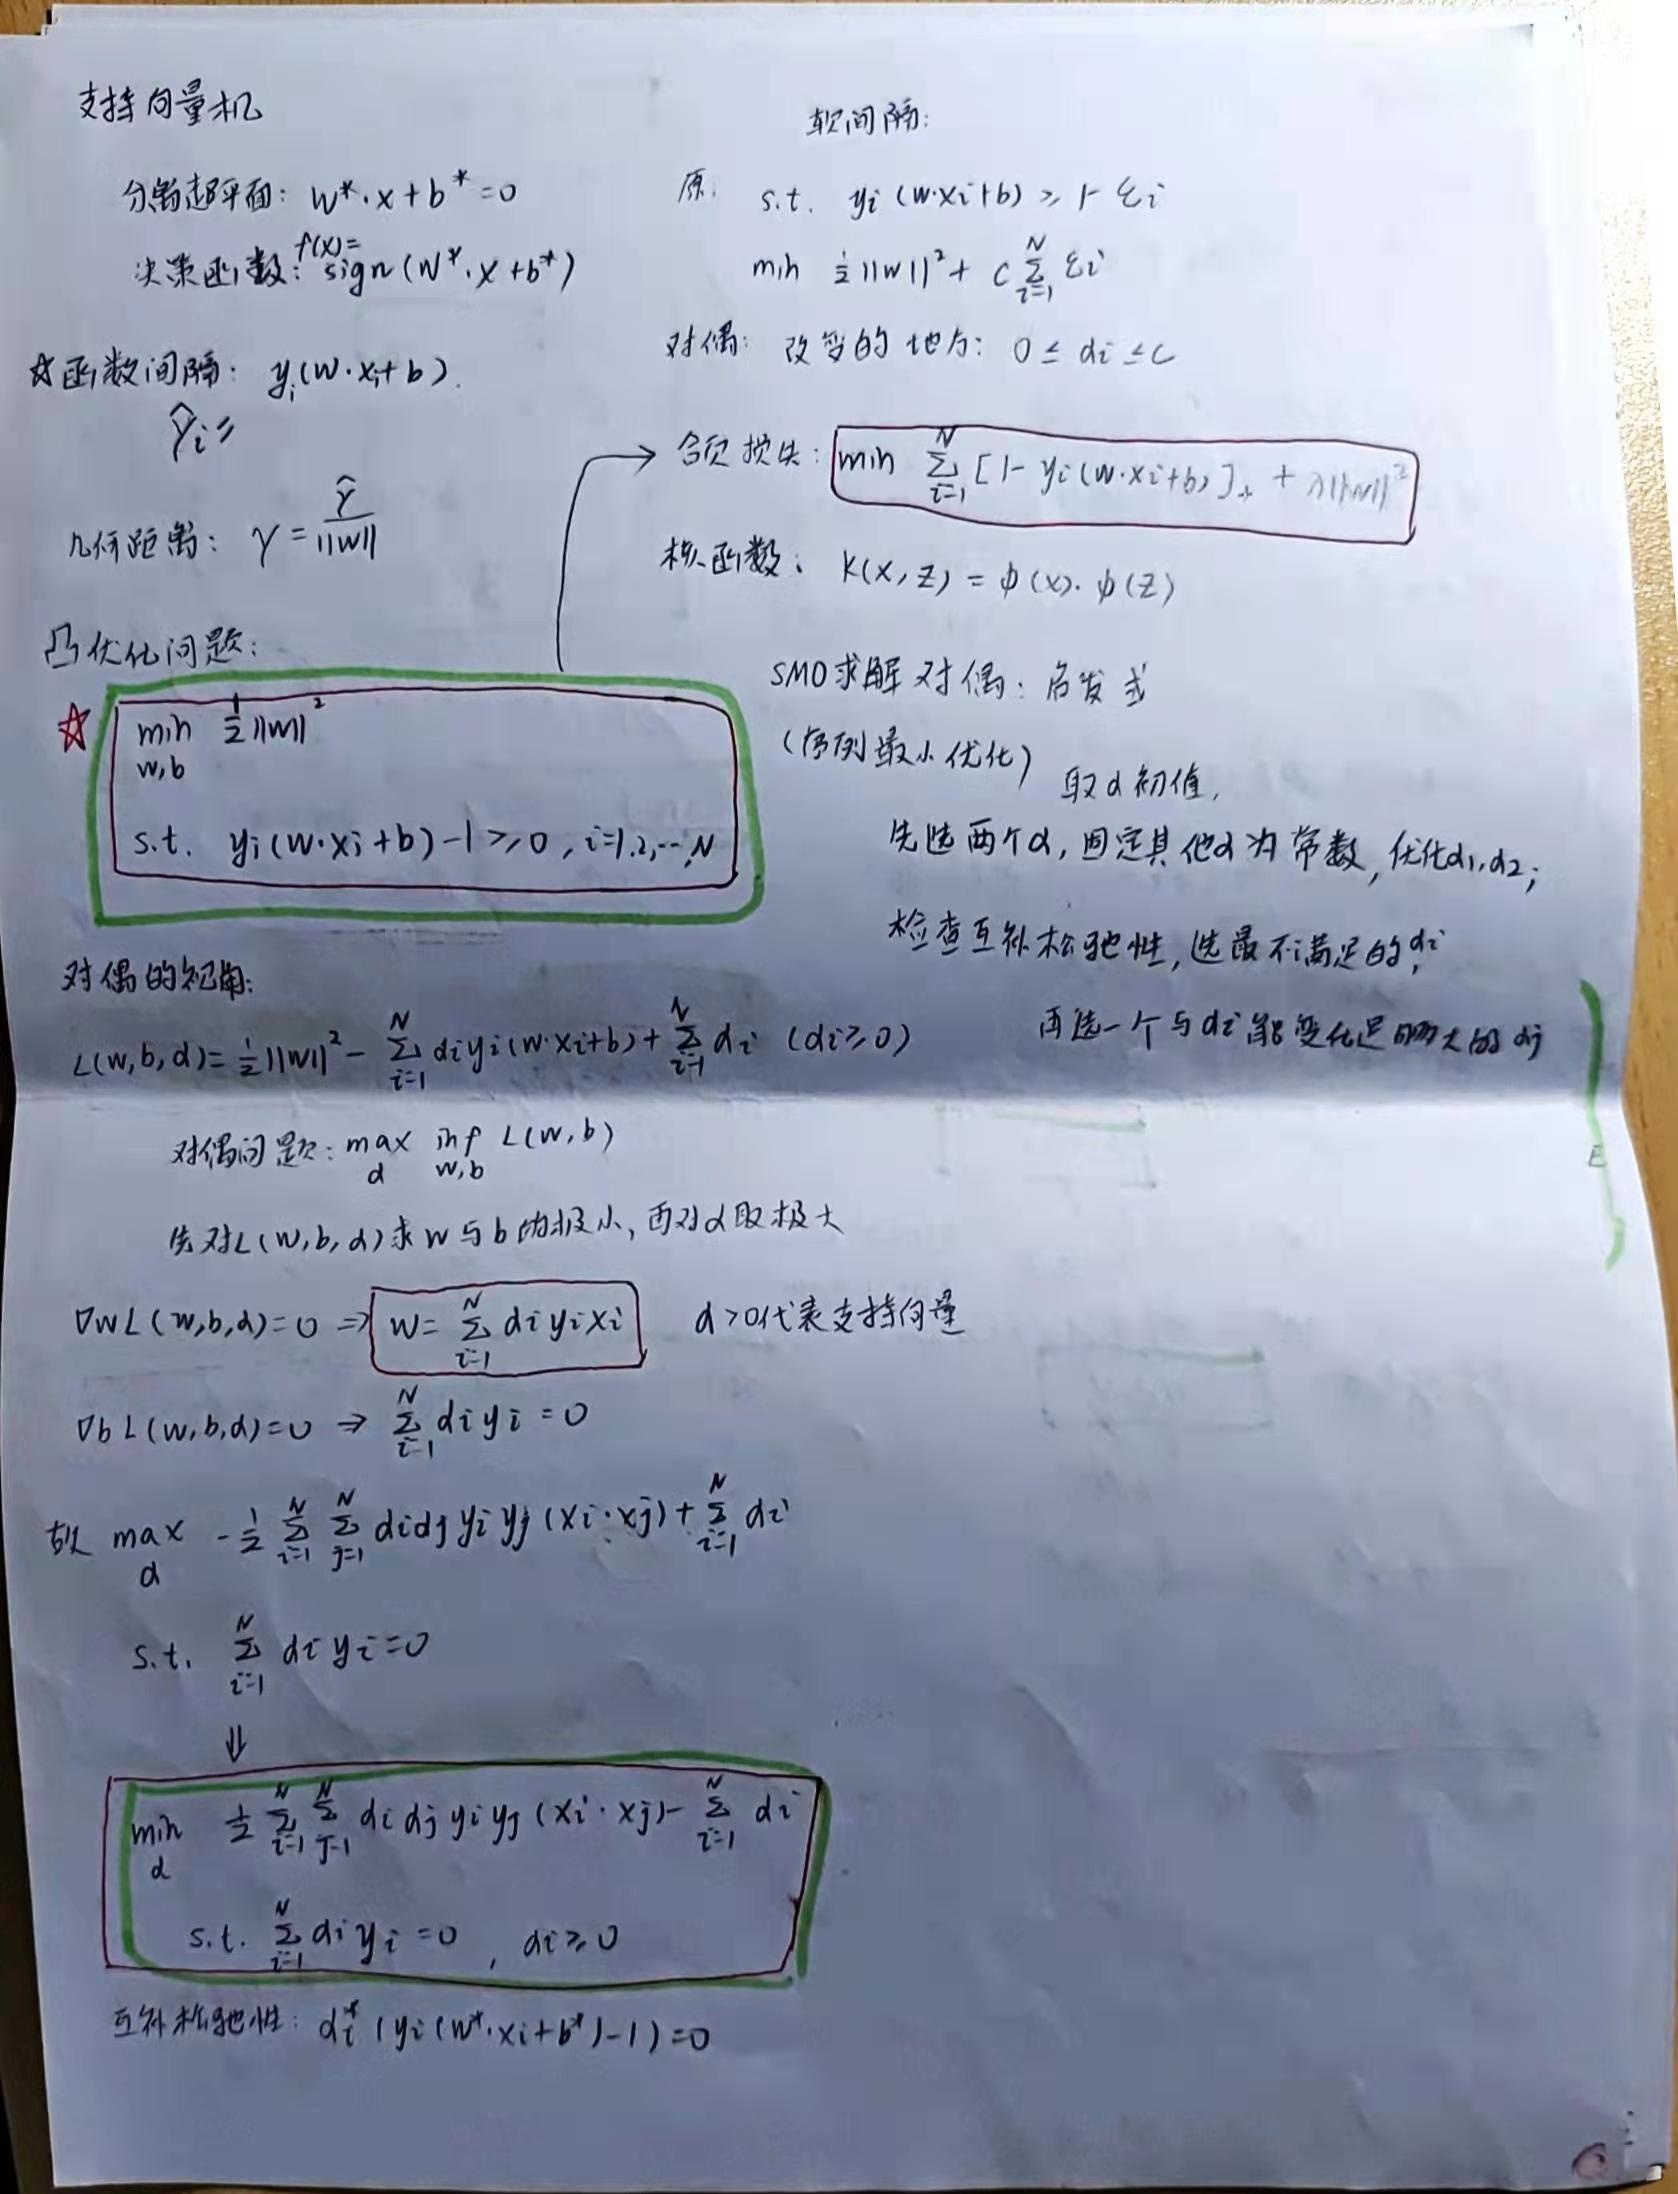 支持向量机
分离超平面: w*·x+b*=0
决策函数: f(x)= sign(w*·x+b*)
☆函数间隔: yᵢ(w·xᵢ+b).
γ̂ᵢ=
几何距离: γ = γ̂/||w||
凸优化问题:
☆ min ½||w||²
w,b
s.t. yᵢ(w·xᵢ+b)-1≥0, i=1,2,…,N
对偶的视角:
L(w,b,α)=½||w||²-∑ᵢ₌₁ᴺ αᵢyᵢ(w·xᵢ+b)+∑ᵢ₌₁ᴺ αᵢ (αᵢ≥0)
对偶问题: max inf L(w,b)
α w,b
先对L(w,b,α)求w与b的极小,再对α取极大
∇wL(w,b,α)=0 ⇒ w=∑ᵢ₌₁ᴺ αᵢyᵢxᵢ α>0代表支持向量
∇bL(w,b,α)=0 ⇒ ∑ᵢ₌₁ᴺ αᵢyᵢ=0
故 max -½∑ᵢ₌₁ᴺ∑ⱼ₌₁ᴺ αᵢαⱼyᵢyⱼ(xᵢ·xⱼ)+∑ᵢ₌₁ᴺ αᵢ
α
s.t. ∑ᵢ₌₁ᴺ αᵢyᵢ=0
⇓
min ½∑ᵢ₌₁ᴺ∑ⱼ₌₁ᴺ αᵢαⱼyᵢyⱼ(xᵢ·xⱼ)-∑ᵢ₌₁ᴺ αᵢ
α
s.t. ∑ᵢ₌₁ᴺ αᵢyᵢ=0, αᵢ≥0
互补松弛性: αᵢ*(yᵢ(w*·xᵢ+b*)-1)=0
软间隔:
原: s.t. yᵢ(w·xᵢ+b)≥1-ξᵢ
min ½||w||²+C∑ᵢ₌₁ᴺ ξᵢ
对偶: 改变的地方: 0≤αᵢ≤C
合页损失: min ∑ᵢ₌₁ᴺ[1-yᵢ(w·xᵢ+b)]₊+λ||w||²
核函数: K(x,z)=φ(x)·φ(z)
SMO求解对偶: 启发式
(序列最小优化)
取α初值,
先选两个α,固定其他α为常数,优化α₁,α₂;
检查互补松弛性,选最不满足的αᵢ,
再选一个与αᵢ能变化足够大的αⱼ